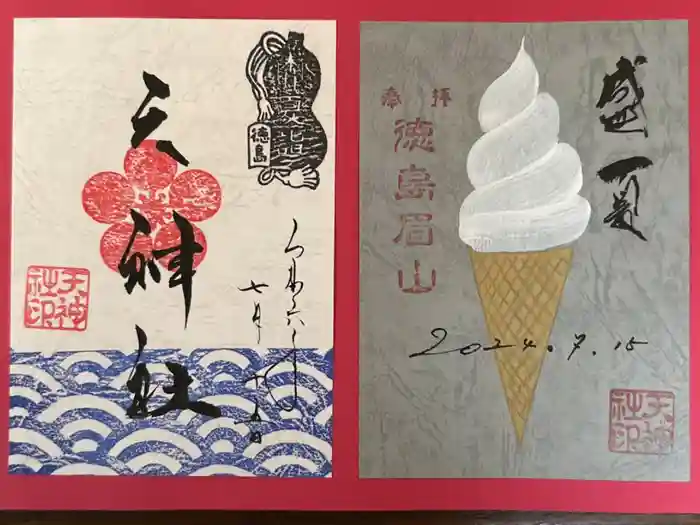 天神社
徳島
令和六年
七月十五日
天神
社印
奉拝
徳島眉山
盛夏
2024.7.15
天神
社印